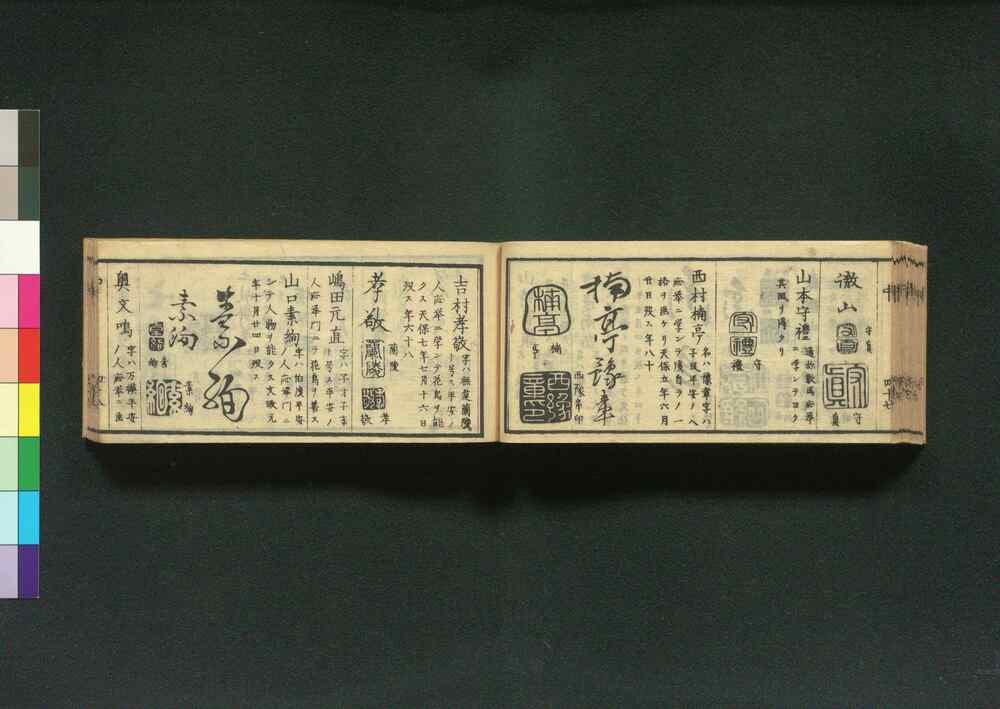 徽山
守真
守
真
山本守禮
通称数馬応挙
ニ学ンテヨク
其風ヲ得タリ
守
禮
西村楠亭
名ハ豫章字ハ
子風平安ノ人
応挙ニ学ンテ後自ラ一
格ヲ画ケリ天保五年六月
廿日歿ス年八十
楠亭豫章
楠
亭
西豫章印
吉村孝敬
字ハ無違蘭陵
ト号ス平安ノ
人応挙ニ学ンテ花鳥ヲ能
クス天保七年七月十六日
歿ス年六十八
孝敬
蘭陵
孝
敬
嶋田元直
字ハ子方子玄
ト号ス平安ノ
人応挙門ニテ花鳥ヲ善ス
山口素絢
字ハ伯後平安
ノ人応挙門ニ
シテ人物ヲ能クス文政元
年十月廿四日歿ス
素絢
素絢
素
絢
素絢
奥文鳴
字ハ万禩平安
ノ人応挙ニ画